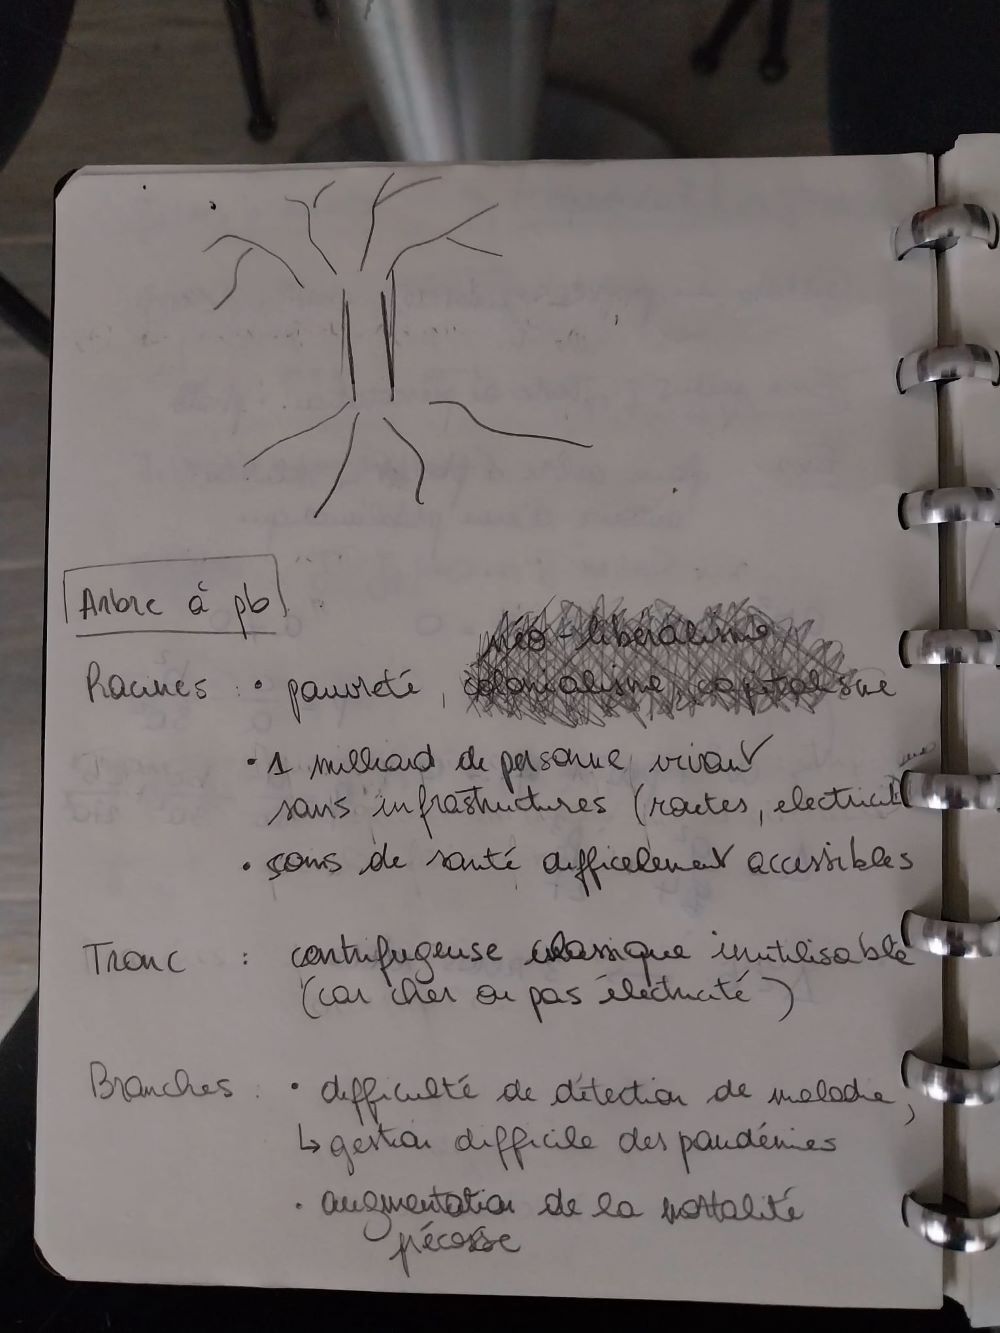 Arbre à pb
néo-libéralisme
Racines : • pauvreté, colonialisme, capitalisme
• 1 milliard de personne vivant
sans infrastructures (routes, electricité
• soins de santé difficilement accessibles
Tronc : centrifugeuse classique inutilisable
(car cher ou pas électricité)
Branches : • difficulté de détection de maladie,
↳ gestion difficile des pandémies
• augmentation de la mortalité
précosse